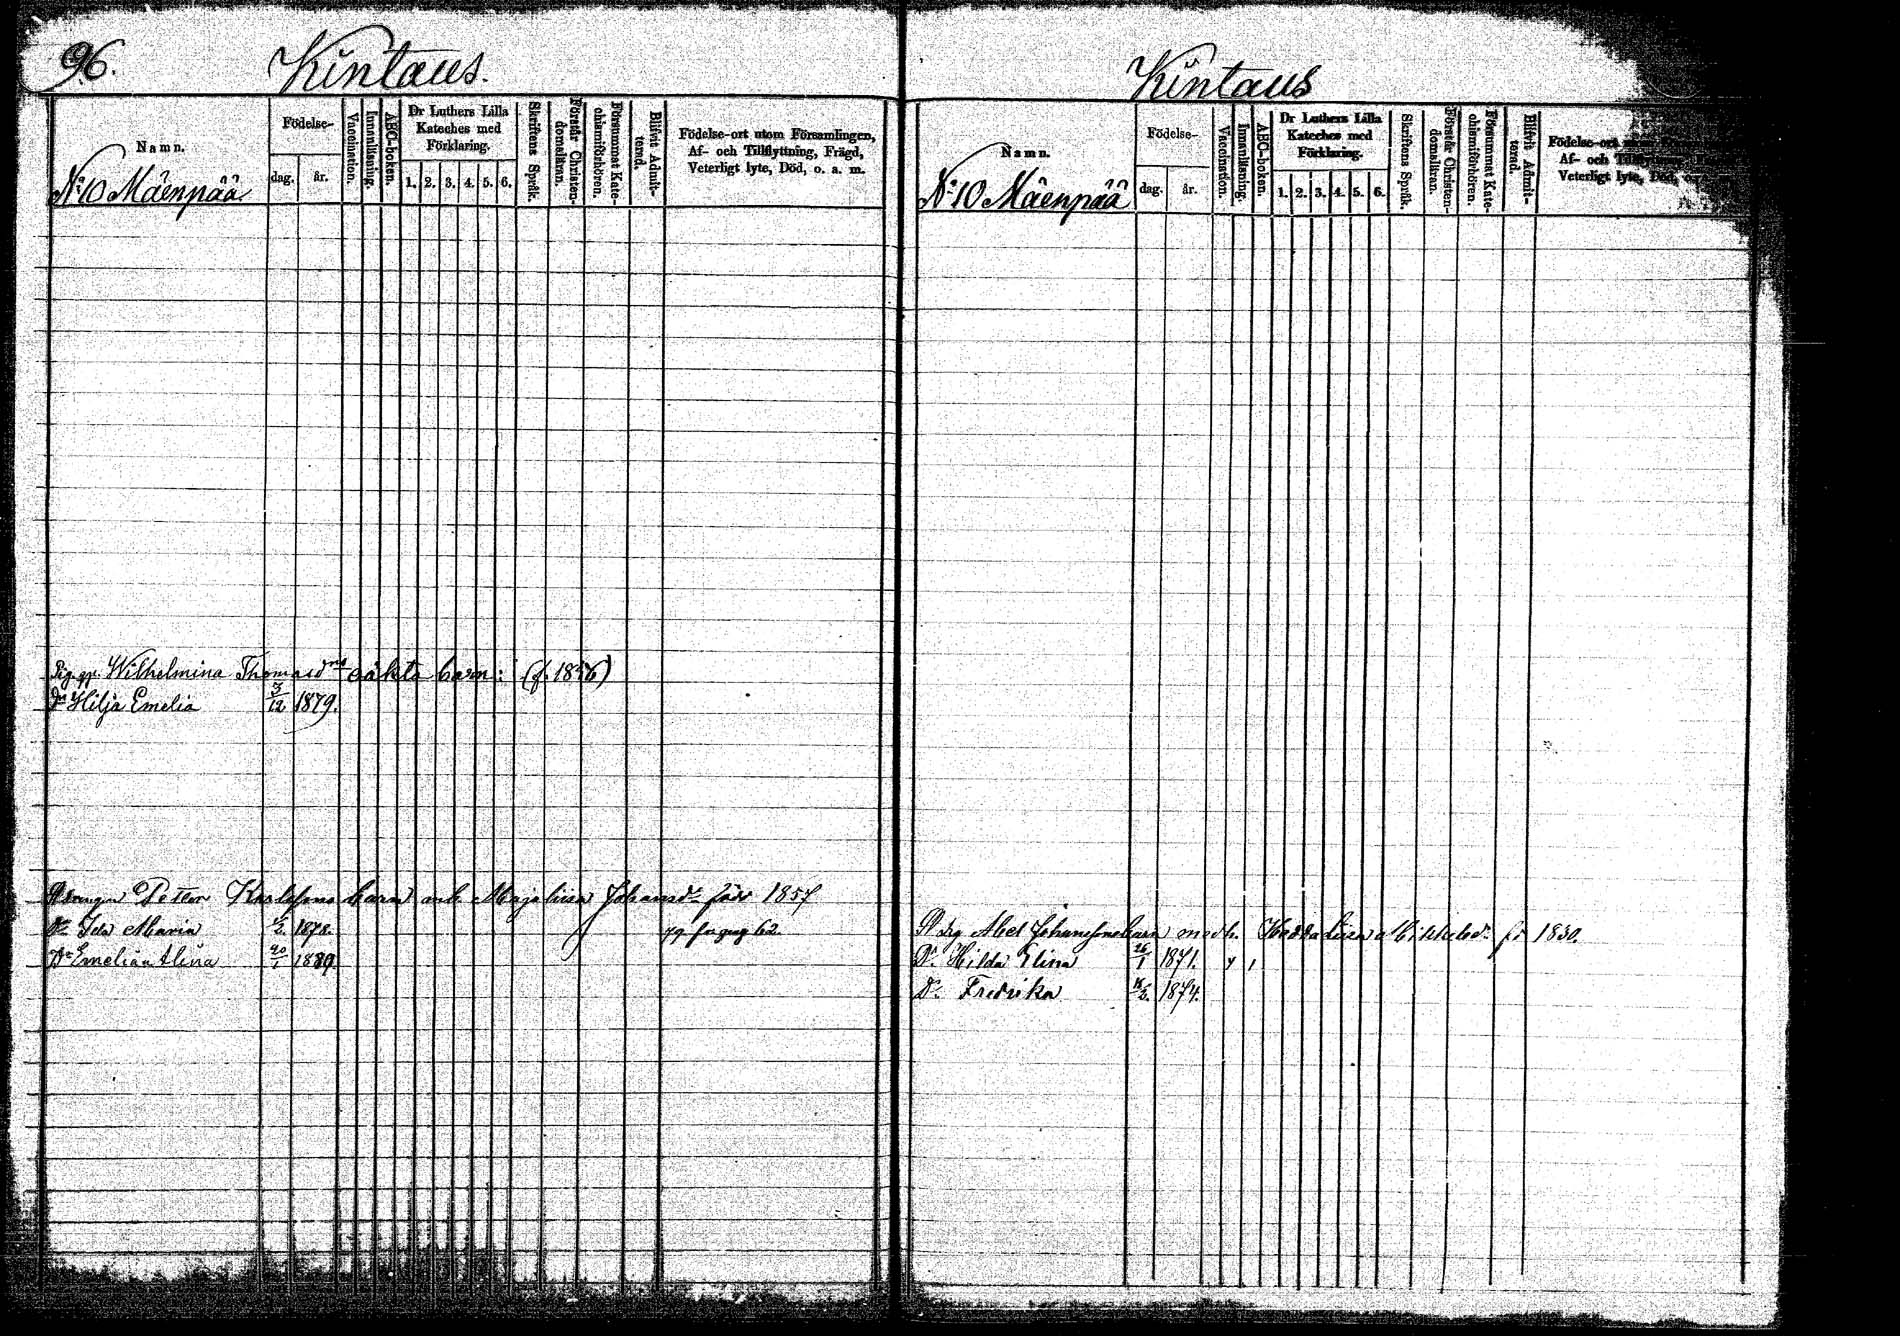 96. Kintaus.
Namn.
Födelse-
dag. år.
Vaccination.
Innanläsning.
ABC-boken.
Dr Luthers Lilla Kateches med Förklaring.
1. 2. 3. 4. 5. 6.
Skriftens Språk.
Förstår Christendomsläran.
Försummat Katechismiförhören.
Blifvit Admitterad.
Födelse-ort utom Församlingen,
Af- och Tillflyttning, Frägd,
Veterligt lyte, Död, o. a. m.
No 10 Mäenpää
Wilhelmina Thomasd oäkta barn: (f. 1856)
Dr Hilja Emelia 3/12 1879.
Peter Karlssons barn Maja Lisa Johansdr född 1857
Dr Ida Maria 1878. 62.
Dr Emelia Alina 20/1 1880
Kintaus
Namn.
Födelse-
dag. år.
Vaccination.
Innanläsning.
ABC-boken.
Dr Luthers Lilla Kateches med Förklaring.
1. 2. 3. 4. 5. 6.
Skriftens Språk.
Förstår Christendomsläran.
Försummat Katechismiförhören.
Blifvit Admitterad.
Födelse-ort
Af- och
Veterligt lyte, Död,
No 10 Mäenpää
Abel Johanssons barn med h. Hedda Lisa 1830.
Dr. Hilda Elina 26/1 1871.
Dr. Fredrika 1874.